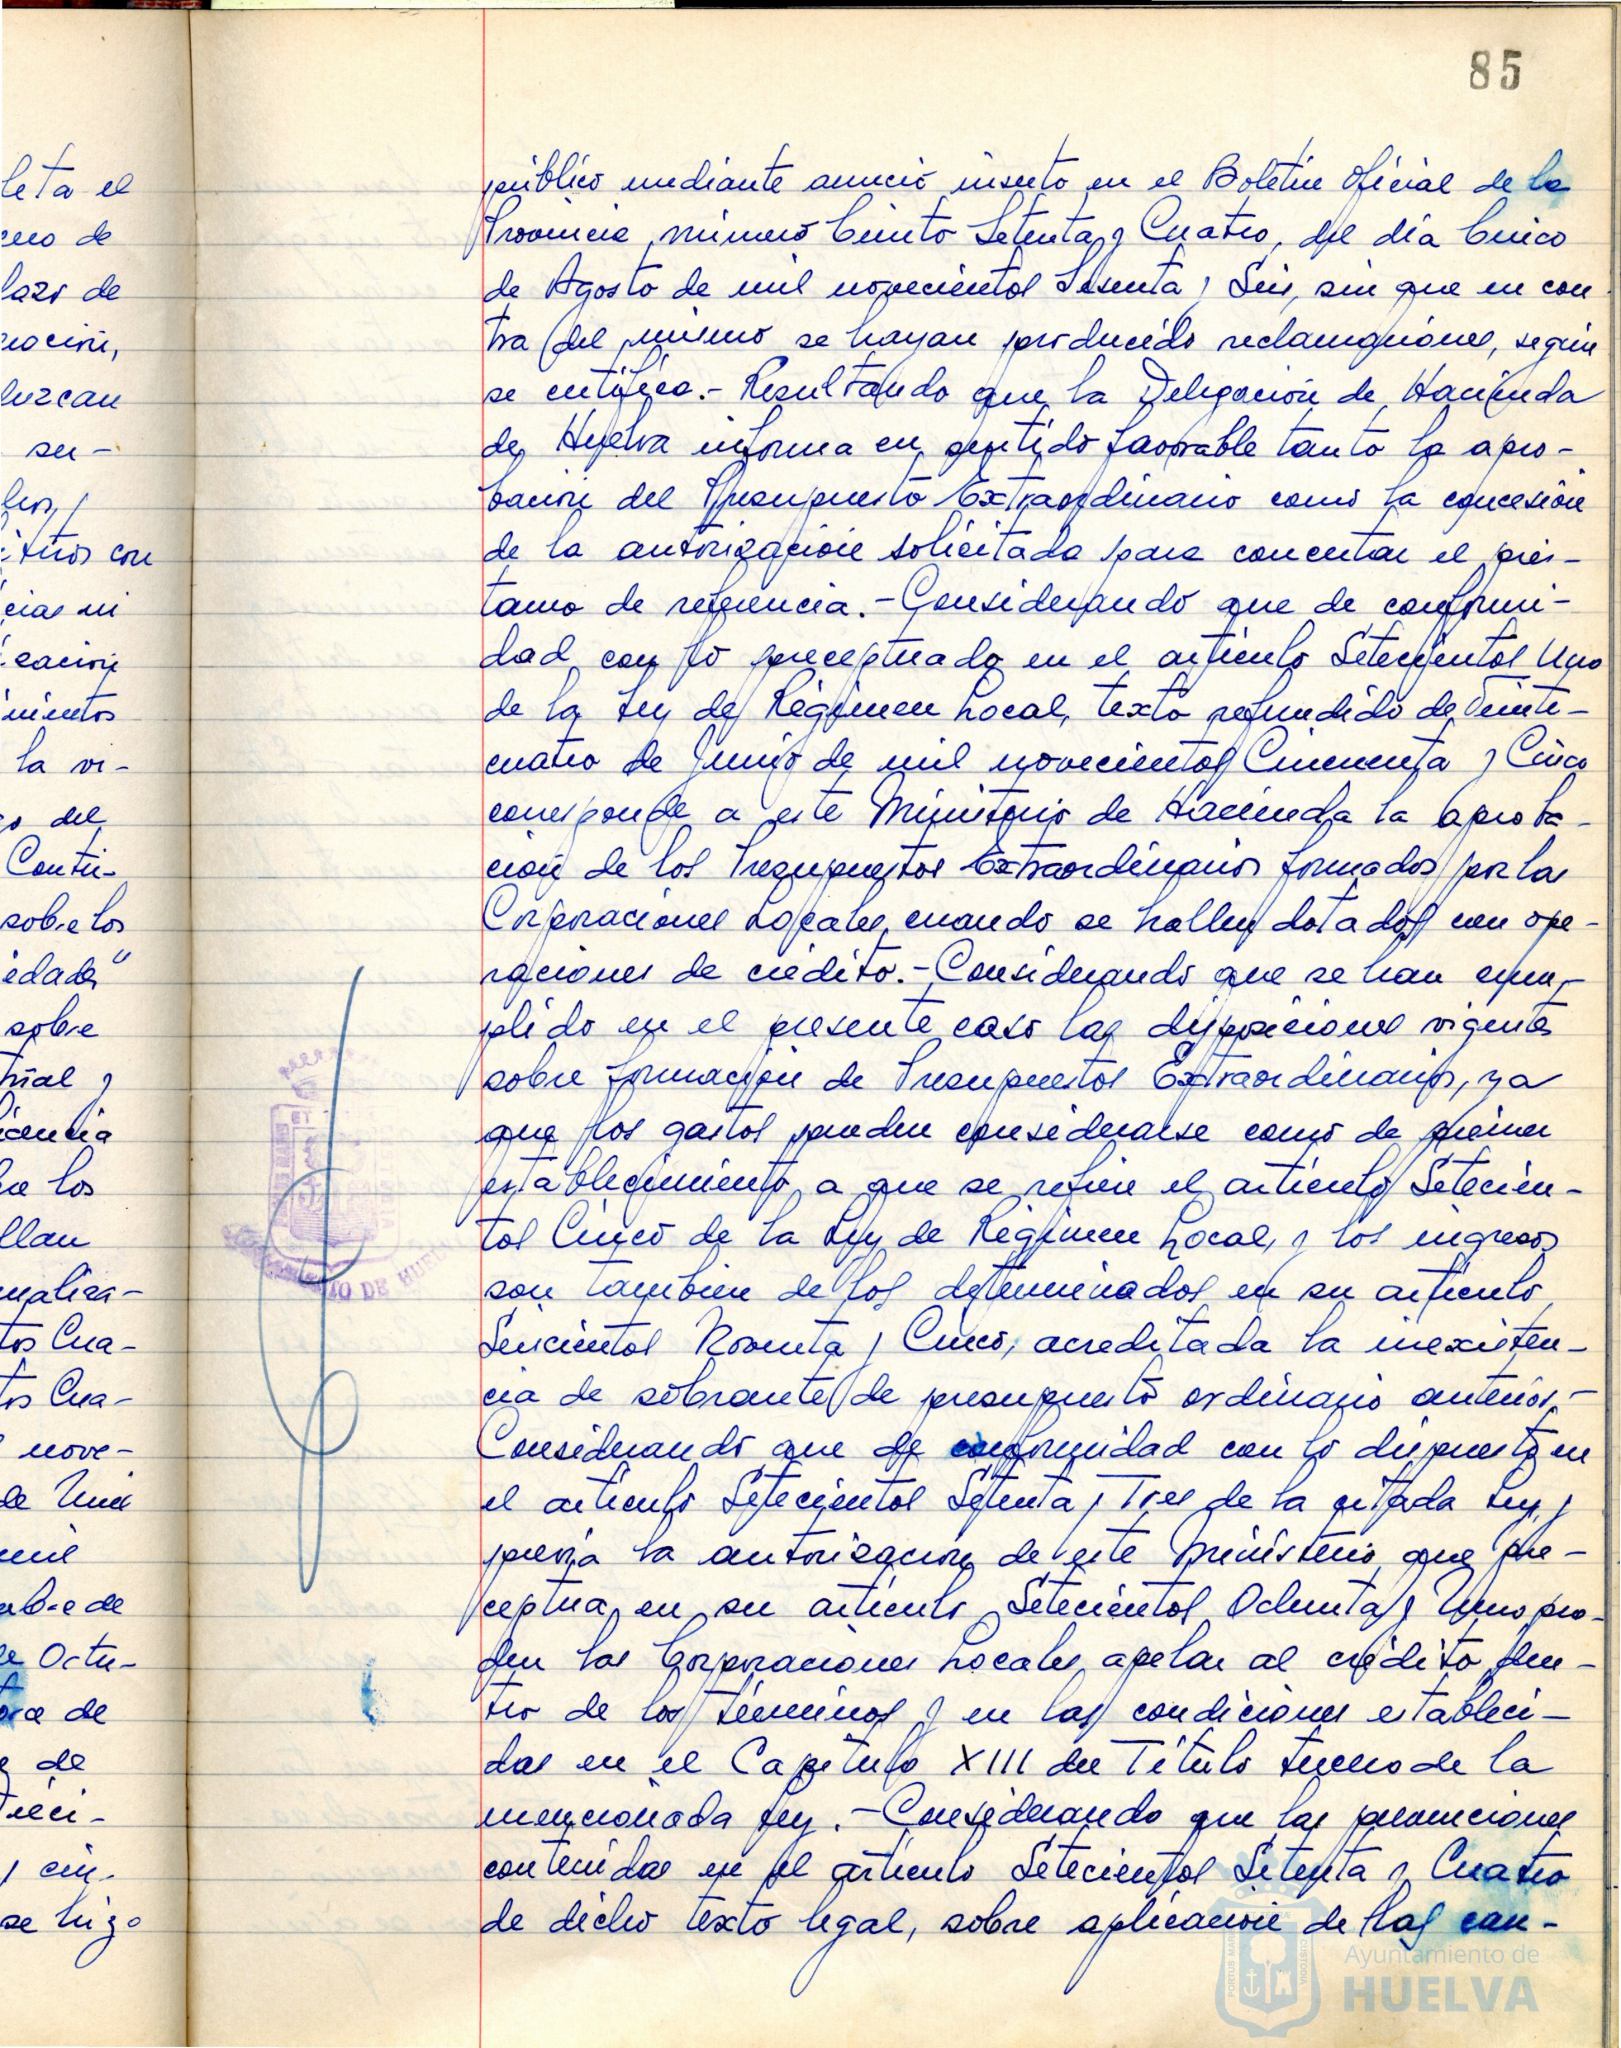 85
público mediante anuncio inserto en el Boletín Oficial de la
Provincia, número Ciento Setenta y Cuatro, del día Cinco
de Agosto de mil novecientos Sesenta y Seis, sin que en con
tra del mismo se hayan producido reclamaciones, según
se certifica.- Resultando que la Delegación de Hacienda
de Huelva informa en sentido favorable tanto la apro-
bación del Presupuesto Extraordinario como la concesión
de la autorización solicitada para concertar el prés-
tamo de referencia.- Considerando que de conformi-
dad con lo preceptuado en el artículo Setecientos Uno
de la Ley de Régimen Local, texto refundido de Veinti-
cuatro de Junio de mil novecientos Cincuenta y Cinco
corresponde a este Ministerio de Hacienda la aproba-
ción de los Presupuestos Extraordinarios formados por las
Corporaciones Locales, cuando se hallen dotados con ope-
raciones de crédito.- Considerando que se han cum-
plido en el presente caso las disposiciones vigentes
sobre formación de Presupuestos Extraordinarios, ya
que los gastos pueden considerarse como de primer
establecimiento, a que se refiere el artículo Setecien-
tos Cinco de la Ley de Régimen Local, y los ingresos
son también de los determinados en su artículo
Seiscientos Noventa y Cinco, acreditada la inexisten-
cia de sobrante de presupuesto ordinario anterior.-
Considerando que de conformidad con lo dispuesto en
el artículo Setecientos Setenta y Tres de la citada Ley, y
previa la autorización de este Ministerio, que pre-
ceptua en su artículo Setecientos Ochenta y Uno, pro-
den las Corporaciones Locales, apelar al crédito den-
tro de los términos y en las condiciones estableci-
das en el Capítulo XIII del Título tercero de la
mencionada Ley.- Considerando que las prevenciones
contenidas en el artículo Setecientos Setenta y Cuatro
de dicho texto legal, sobre aplicación de las can-
leta el
lazo de
luzcan
la vi-
sobre los
sobre
se hizo
IO DE HUEL
Ayuntamiento de
HUELVA